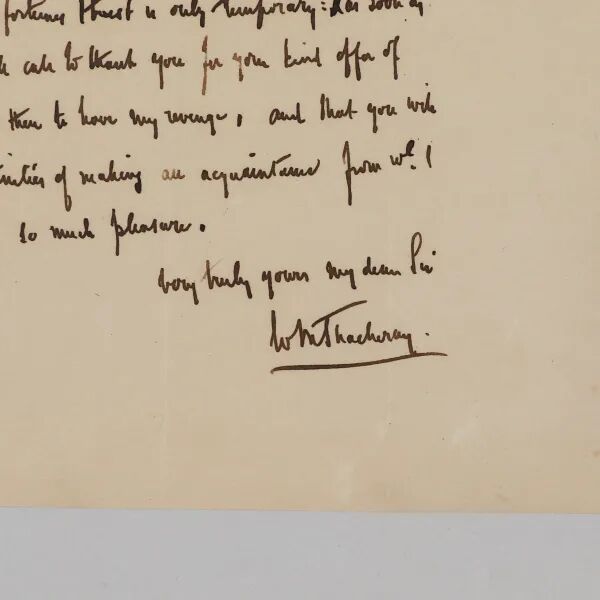 fortunes thirst is only temporary: & as soon as
call to thank you for your kind offer of
then to have my revenge, and that you will
nities of making an acquaintance from wh. I
so much pleasure.
very truly yours my dear Sir
W M Thackeray.